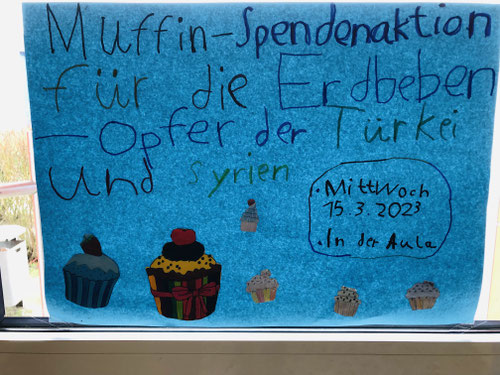 Muffin-Spendenaktion
für die Erdbeben
-Opfer der Türkei
und Syrien
• Mittwoch
15.3.2023
• In der Aula